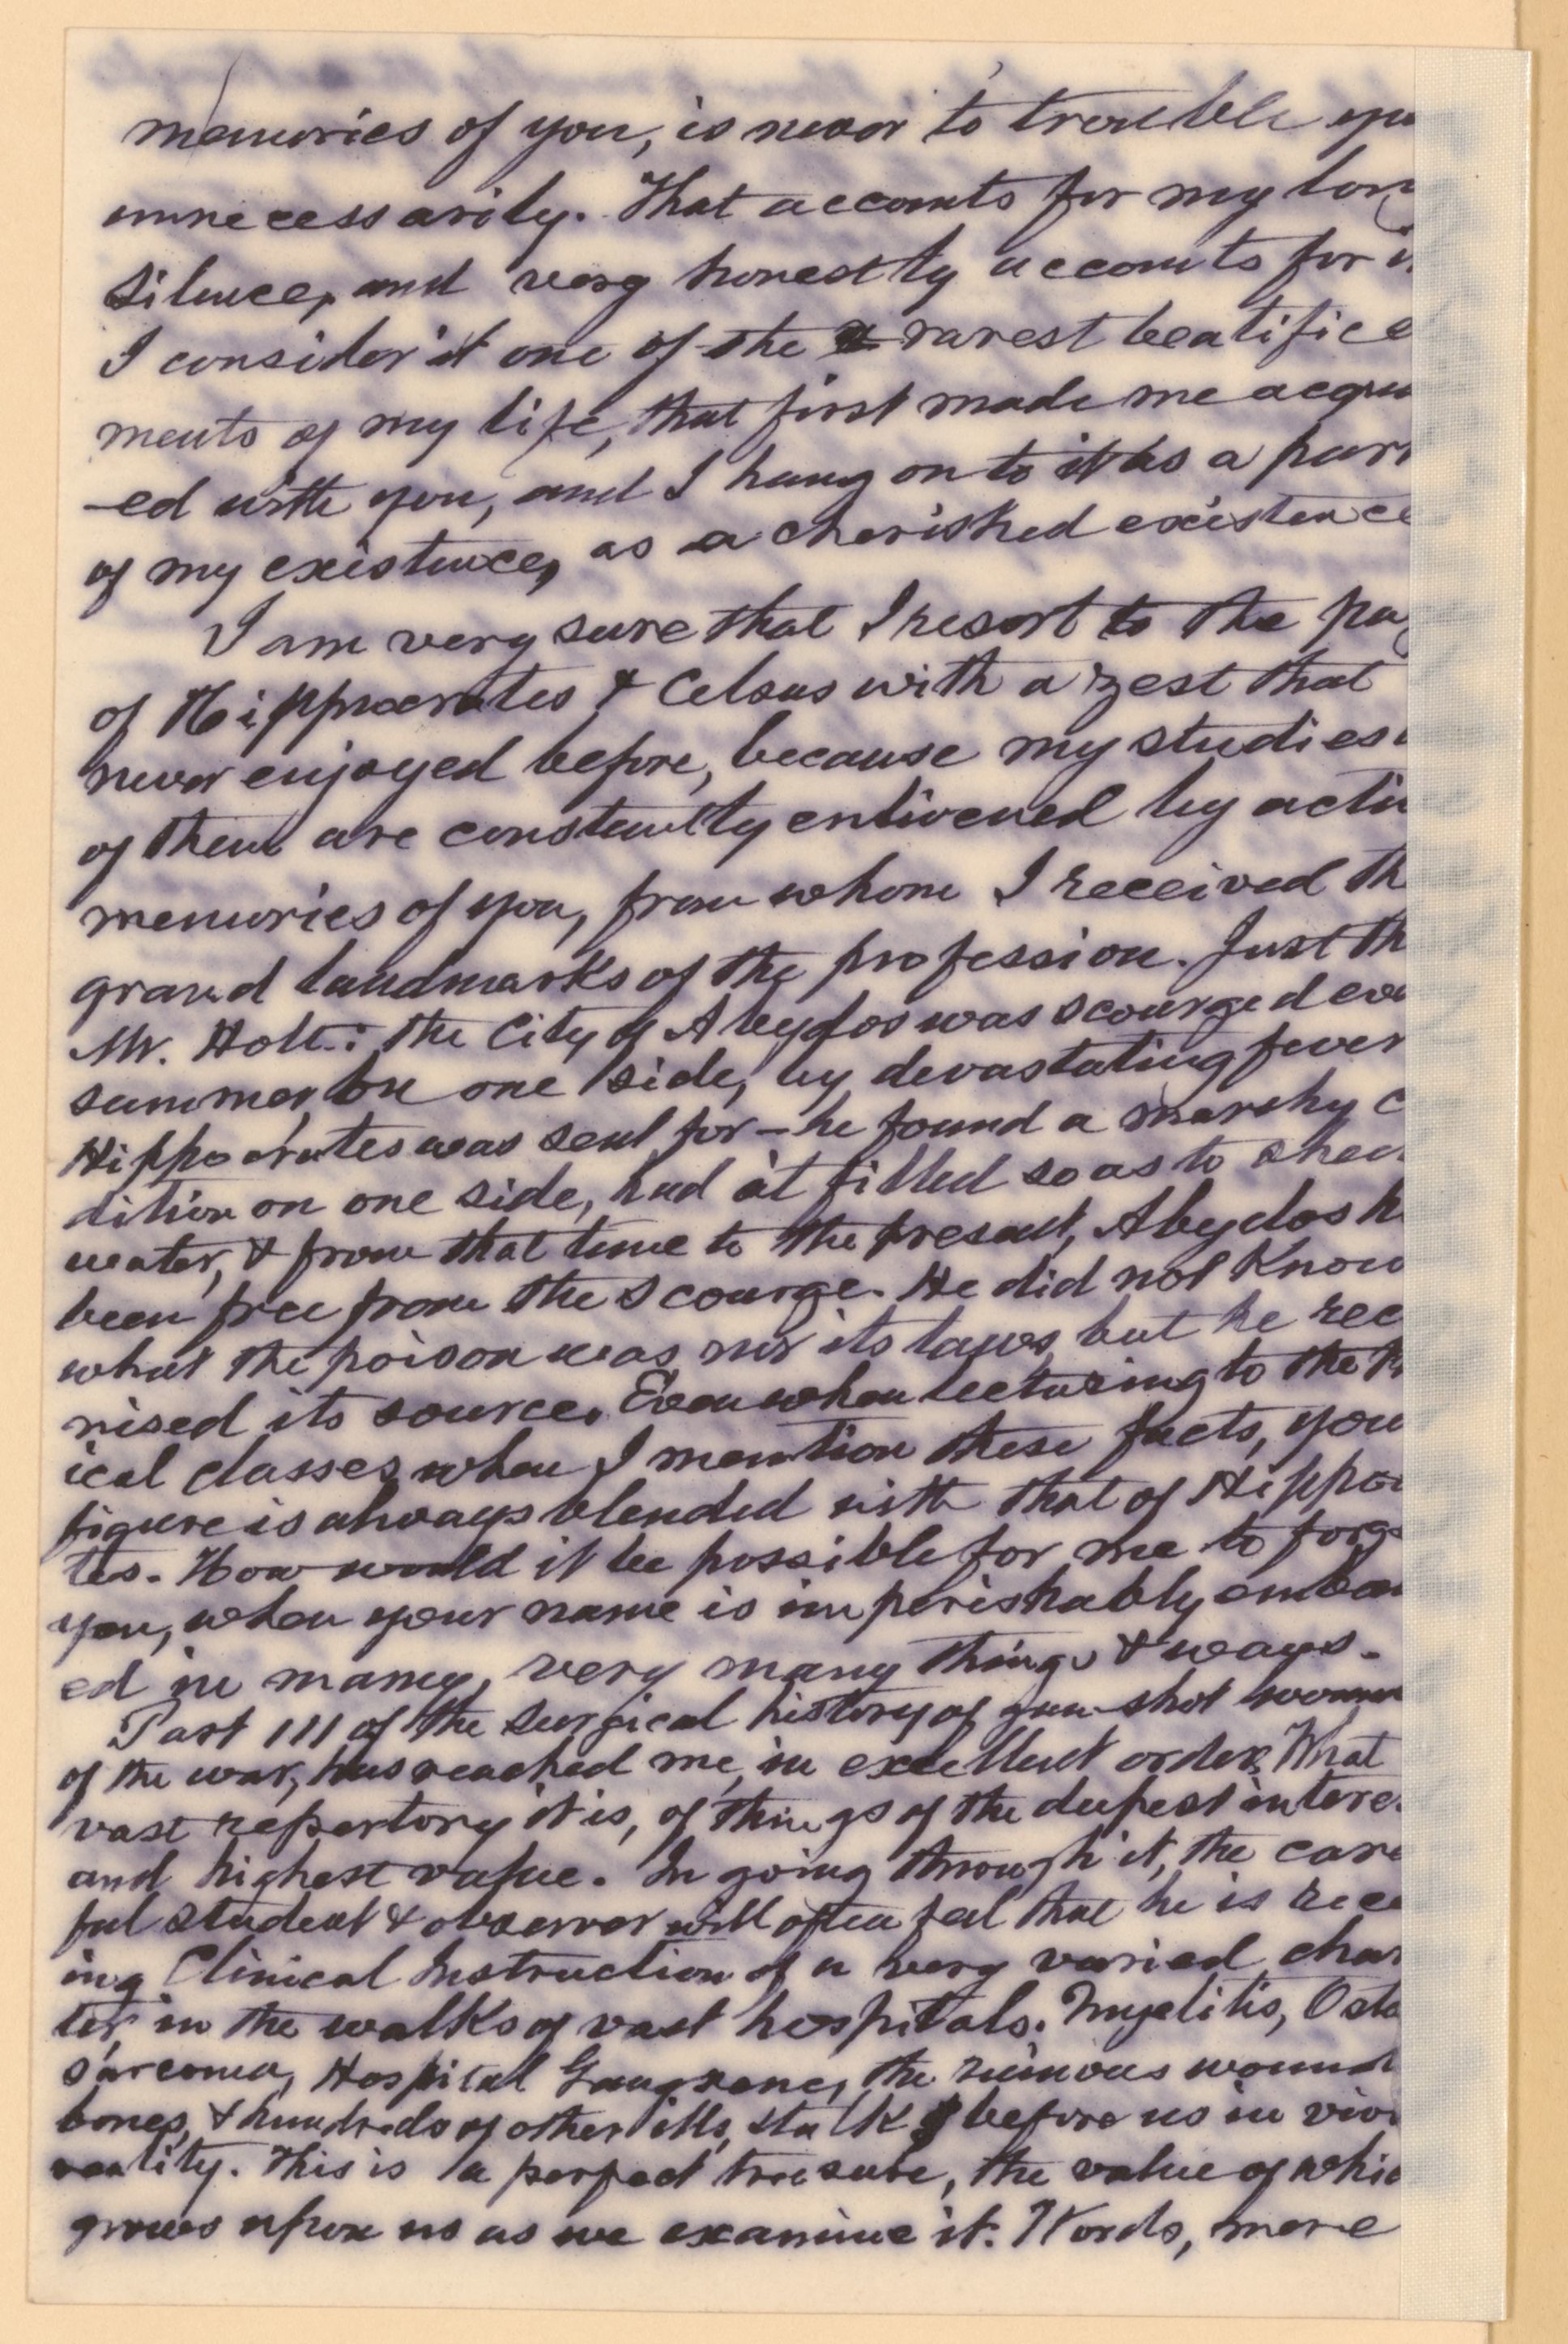 memories of you, is never to trouble you
unnecessarily. That accounts for my long
silence, and very honestly accounts for i
I consider it one of the rarest beatifice
ments of my life, that first made me acqua
-ed with you, and I hang on to it as a part
of my existence, as a cherished existence
I am very sure that I resort to the pag
of Hippocrates & Celsus with a zest that
never enjoyed before, because my studies
of them are constantly enlivened by activ
memories of you, from whom I received th
grand landmarks of the profession. Just th
Mr. Holt: the City of Abydos was scourged eve
summer, on one side, by devastating fever
Hippocrates was sent for - he found a marshy c
dition on one side, had it filled so as to shed
water, & from that time to the present, Abydos h
been free from the scourge. He did not know
what the poison was, nor its laws, but he rec
nised its source. Even when lecturing to the M
ical classes, when I mention these facts, you
figure is always blended with that of Hippoc
tes. How would it be possible for me to forg
you, when your name is imperishably embal
ed in many, very many things & ways.
Part III of the surgical history of gun-shot woun
of the war, has reached me, in excellent order. What
vast repertory it is, of things of the deepest intere
and highest value. In going through it, the care
ful student & observer will often feel that he is rece
ing Clinical Instruction of a very varied charac
ter, in the walks of vast hospitals. Myelitis, Oste
sarcoma, Hospital Gangrene, the ruinous wound
bones, & hundreds of other ills, stalk before us in vivi
reality. This is a perfect treasure, the value of whic
grows upon us as we examine it. Words, mere